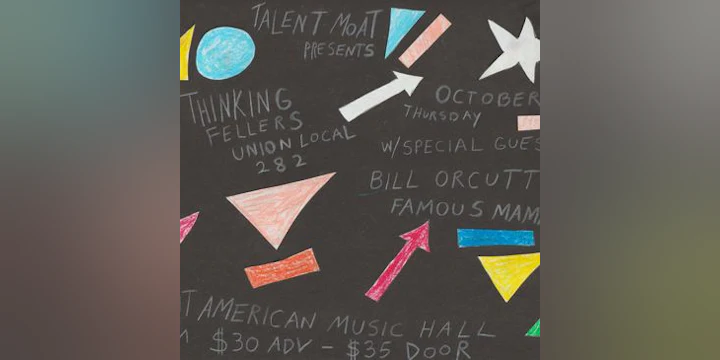 TALENT MOAT
PRESENTS
THINKING
FELLERS
UNION LOCAL
282
OCTOBER
THURSDAY
W/SPECIAL GUES
BILL ORCUTT
FAMOUS MAM
T AMERICAN MUSIC HALL
M $30 ADV - $35 DOOR